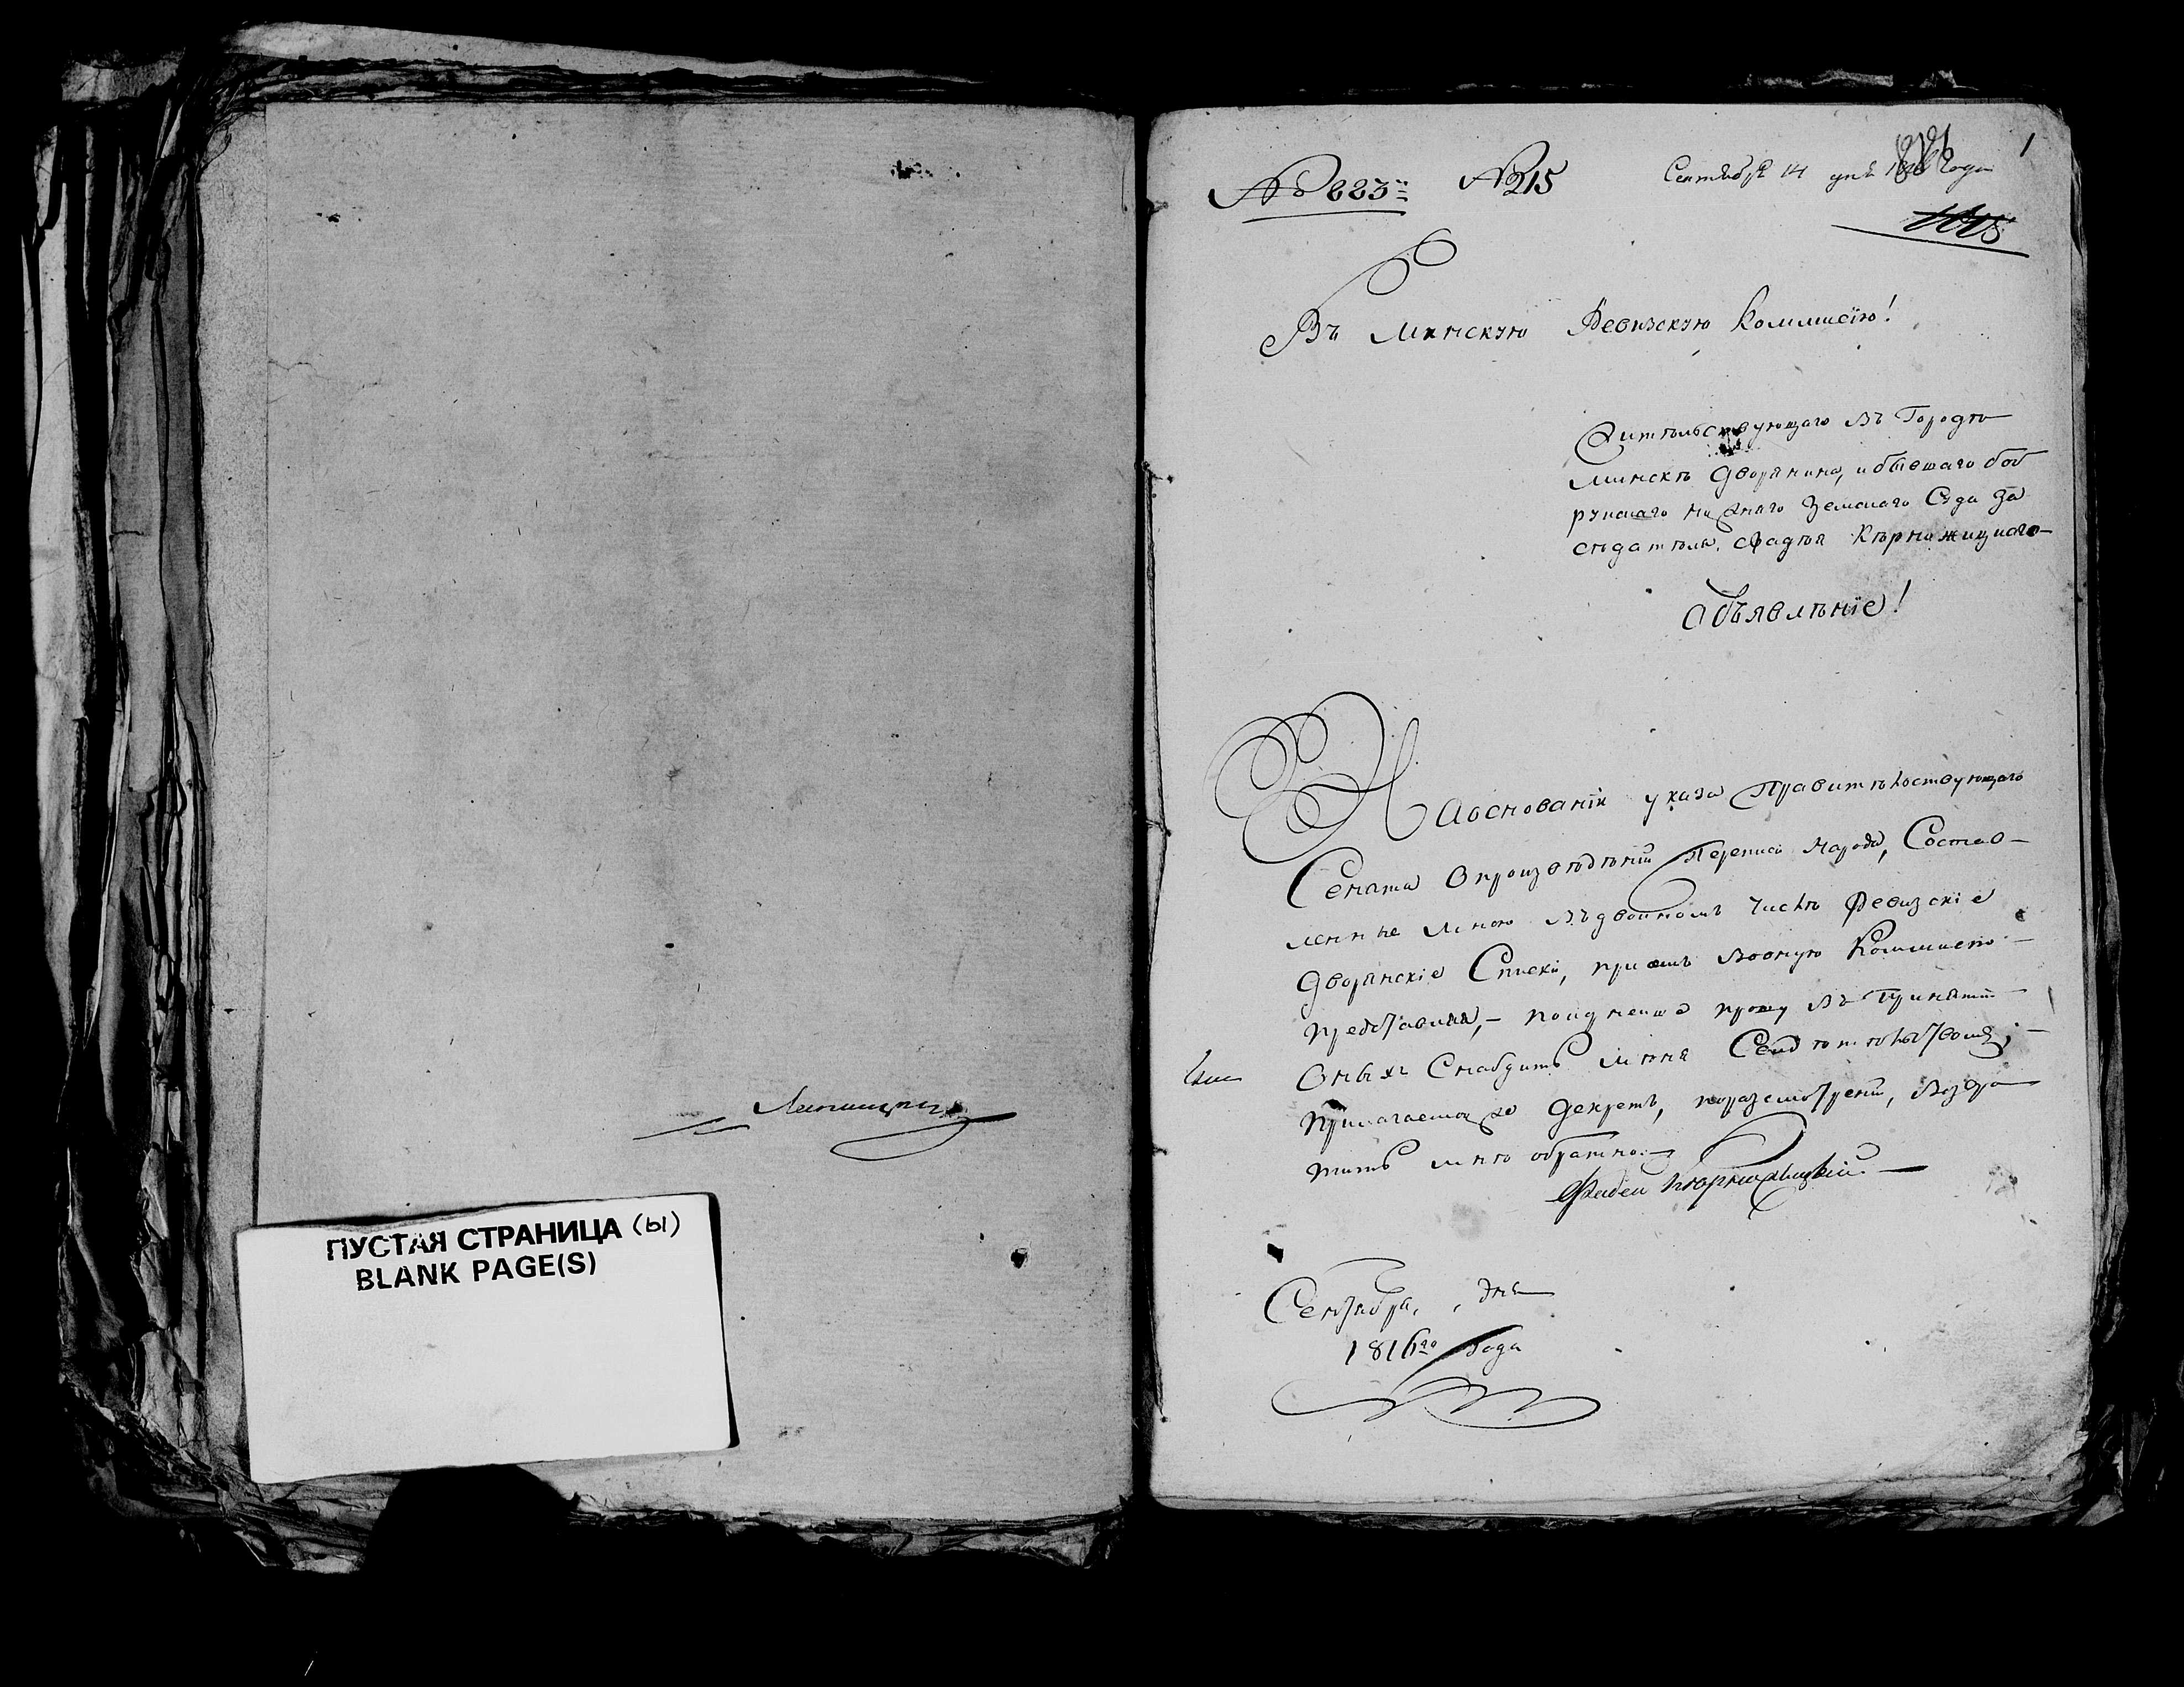 Липницкий
ПУСТАЯ СТРАНИЦА (ы)
BLANK PAGE(S)
1
№ 223й № 215 Сентября 14 дня года
Въ Минскую Ревизскую Коммисїю!
Жительствующаго въ Городѣ
Минскѣ дворянина, и бывшаго боб
руискаго нижняго Земскаго Суда За
сѣдателя. Фадѣя Кѣрножицкаго
Объявлѣнїе!
На основанїи указа Правитѣльствующаго
Сената о произвѣдѣнїи Переписи Народа, Состав-
ленные мною въ двойномъ числѣ Ревизскїе
дворянскїе Списки, при семъ въ оную Коммисїю
представляя,- покорнейше прошу въ принятїи
Оныхъ Снабдить мѣня Свидѣтѣльствомъ;
Прилагаемой же декретъ, по разсмотренїи, Возвра
тить мнѣ обратно.
Фадей Кѣрножицкїй
Сентября, дня
1816го года